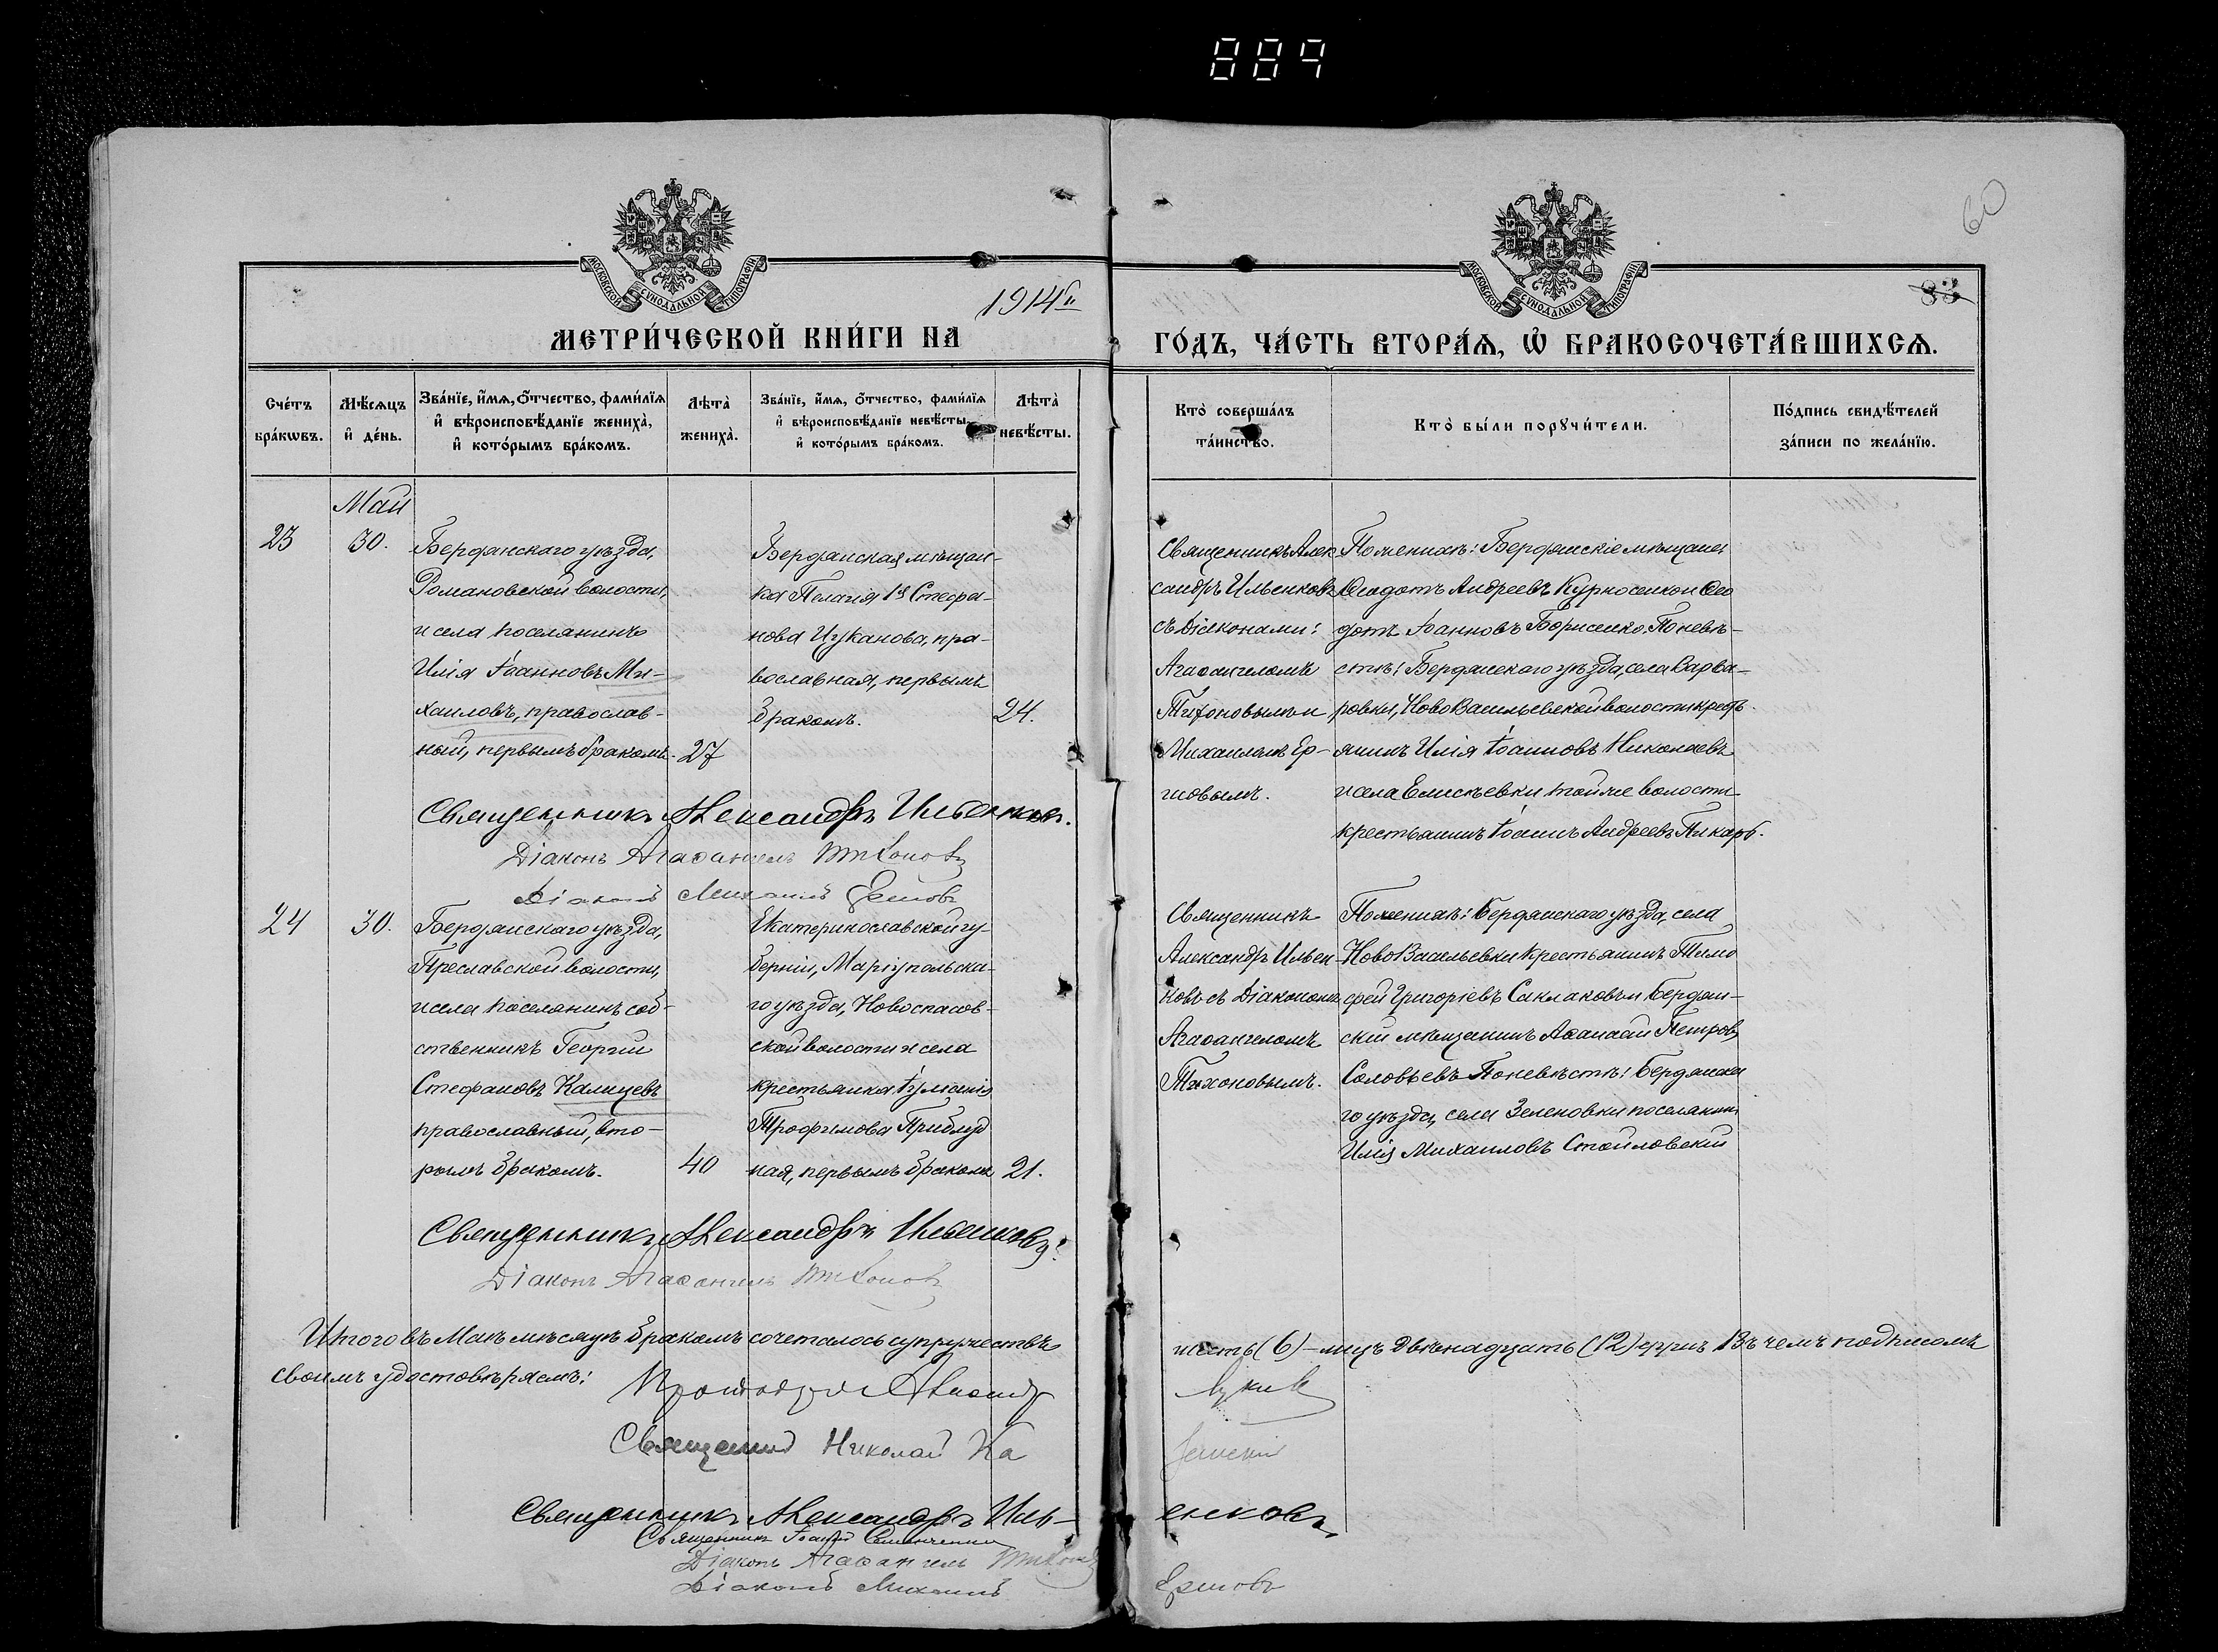 889
60
83
МОСКОВСКОЙ СѴНОДАЛЬНОЙ ТИПОГРАФІИ
МОСКОВСКОЙ СѴНОДАЛЬНОЙ ТИПОГРАФІИ
МЕТРИ́ЧЕСКОЙ КНИ́ГИ НА 1914й ГО́ДЪ, ЧА́СТЬ ВТОРА́Ѧ, Ѡ҆ БРАКОСОЧЕТА́ВШИХСѦ.
Сче́тъ бра́кѡвъ.
Мѣ́сѧцъ и҆ де́нь.
Зва́нїе, и҆́мѧ, ѻ҆́тчество, фами́лїѧ и҆ вѣроисповѣ́данїе жениха̀, и҆ кото́рымъ бра́комъ.
Лѣта̀ жениха̀.
Зва́нїе, и҆́мѧ, ѻ҆́тчество, фами́лїѧ и҆ вѣроисповѣ́данїе невѣ́сты, и҆ кото́рымъ бра́комъ.
Лѣта̀ невѣ́сты.
Кто̀ соверша́лъ та́инство.
Кто̀ бы́ли порꙋчи́тели.
По́дпись свидѣ́телей за́писи по жела́нїю.
Май
23
30.
Бердянскаго уѣзда,
Романовской волости,
и села поселянинъ
Илія Іоанновъ Ми-
хаиловъ, православ-
ный, первымъ бракомъ.
27
Бердянская мѣщан-
ка Пелагія Стефа-
нова Цуканова, пра-
вославная, первымъ
бракомъ.
24.
Священникъ Алек
сандръ Ильенковъ
съ Діаконами:
Агаѳангеломъ
Тихоновымъ и
Михаиломъ Ер-
шовымъ.
По женихѣ: Бердянскіе мѣщане:
Ѳеодотъ Андреевъ Курносенко и Ѳео
дотъ Іоанновъ Борисенко, По невѣ-
стѣ: Бердянскаго уѣзда, села Варва-
ровки, Ново Васильевской волости крест
янинъ Илія Іоанновъ Николаевъ
и села Елисѣевки той же волости
крестьянинъ Іоаннъ Андреевъ
Священникъ Александръ Ильенковъ.
Діаконъ Агаѳангелъ Тихоновъ
Діаконъ Михаилъ Ершовъ
24
30.
Бердянскаго уѣзда,
Преславской волости,
и села поселянинъ соб-
ственникъ Георгій
Стефановъ Калицевъ
православный, вто-
рымъ бракомъ.
40
Екатеринославской гу
берніи, Маріупольска-
го уѣзда, Новоспасов-
ской волости и села
крестьянка Іуліанія
Трофимова Приблуд
ная, первымъ бракомъ
21.
Священникъ
Александръ Ильен-
ковъ съ Діакономъ
Агаѳангеломъ
Тихоновымъ.
По женихѣ: Бердянскаго уѣзда, села
Ново Васильевки крестьянинъ Тимо
ѳей Григоріевъ Саклаковъ и Бердян-
скій мѣщанинъ Аѳанасій Петровъ
Соловьевъ По невѣстѣ: Бердянска
го уѣзда, села Зеленовки поселянинъ
Илія Михаиловъ Стойловскій
Священникъ Александръ Ильенковъ
Діаконъ Агаѳангелъ Тихоновъ
Итого въ Маѣ мѣсяцѣ бракомъ сочеталось супружествъ шесть (6) – лицъ двѣнадцать (12) Въ чемъ подписомъ
своимъ удостовѣряемъ:
Священникъ Николай Ка
Священникъ Александръ Иль- енковъ
Священникъ Іоаннъ
Діаконъ Агаѳангелъ Тихоновъ
Діаконъ Михаилъ Ершовъ